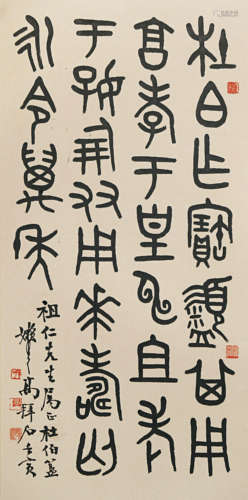 杜白乍寶盨其用
享孝于皇申且考
于好倗友用𠦪壽匄
永令萬年
祖仁先生屬正杜伯簋
高拜石